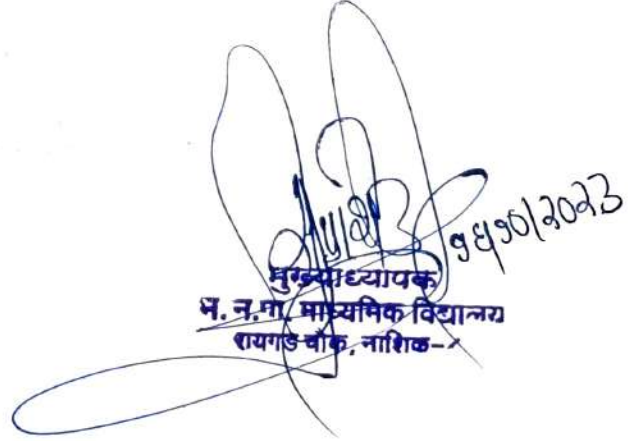 १६/१०/२०२३
मुख्याध्यापक
म. न. पा. माध्यमिक विद्यालय
रायगड चौक, नाशिक-